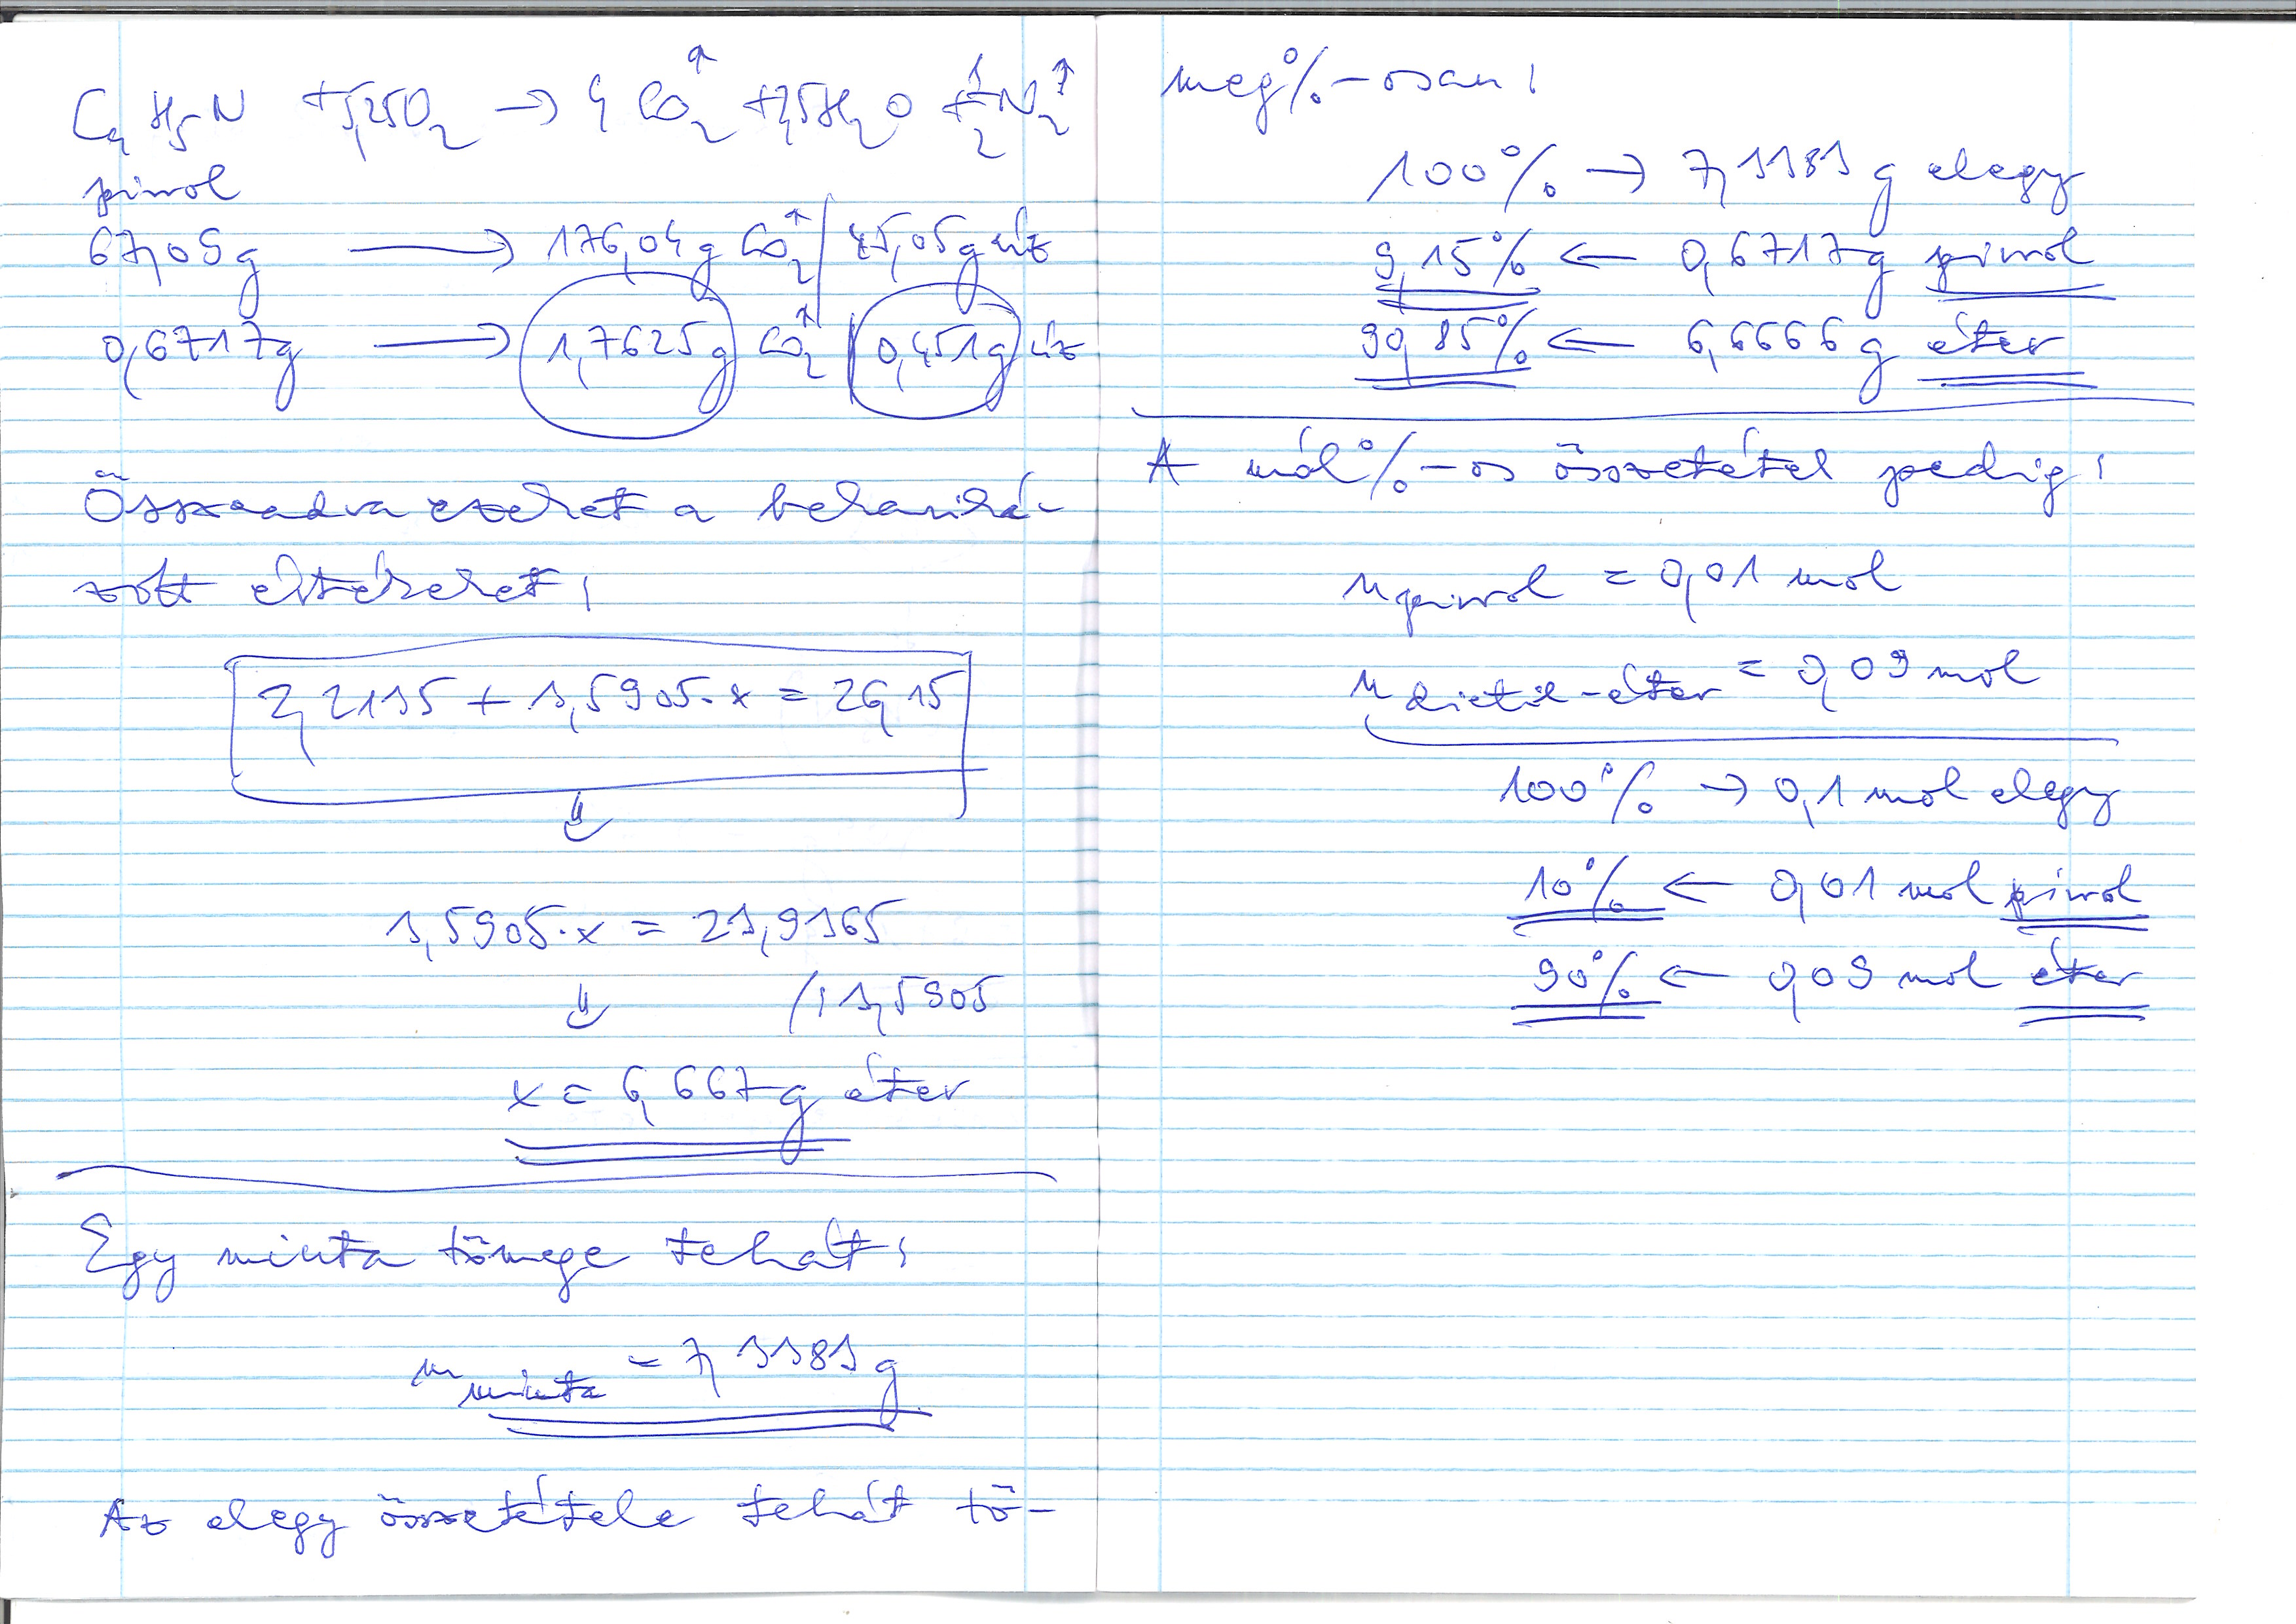 C₄H₅N + 5,25O₂ → 4 CO₂↑ + 2,5H₂O + 1/2 N₂↑
pirrol
67,09g → 176,04g CO₂↑ / 45,05g víz
0,6717g → 1,7625g CO₂↑ / 0,451g víz
Összeadva ezeket a behariká-
zott értékeket;
2,2135 + 3,5905·x = 26,15
⇓
3,5905·x = 23,9365
⇓ /:3,5905
x = 6,667g éter
Egy minta tömege tehát:
m minta = 7,3383g
Az elegy összetétele tehát tö-
meg%-osan:
100% → 7,3383 g elegy
9,15% ← 0,6717g pirrol
90,85% ← 6,6666g éter
A mól%-os összetétel pedig:
n pirrol = 0,01 mol
n dietil-éter = 0,09 mol
100% → 0,1 mol elegy
10% ← 0,01 mol pirrol
90% ← 0,09 mol éter